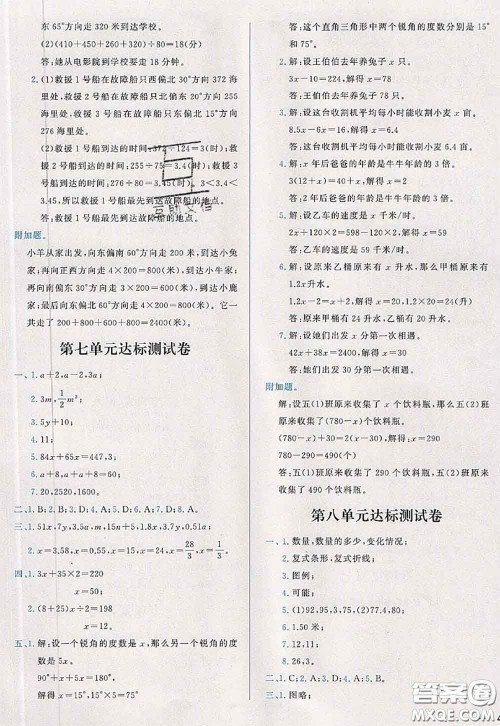 东65°方向走320米到达学校。
(2)(410+450+260+320)÷80=18(分)
答:她从电影院到学校要走18分钟。
2.(1)救援1号船在故障船只西偏北60°方向372海里处,救援2号船在故障船只东偏北20°方向255海里处,救援3号船在故障船只东偏南60°方向276海里处。
(2)救援1号船到达的时间:372÷124=3(时);救援2号船到达的时间:255÷75=3.4(时);救援3号船到达的时间:276÷80=3.45(时)。3<3.4<3.45,所以救援1号船最先到达故障船的地点。
答:救援1号船最先到达故障船的地点。
附加题。
小羊从家出发,向东偏南60°方向走200米,到达小兔家;再向正西方向走4×200=800(米),到达小牛家;再向南偏东30°方向走3×200=600(米),到达小鹿家;最后向东偏北60°方向走4×200=800(米)。它一共走了200+800+600+800=2400(米)。
第七单元达标测试卷
一、1.a+2,a-2,3a;
2.3m,1/2m²;
3.5y+10;
4.11;
5.84x+65x=447,3;
6.12,16,1;
7.20,2520,1620。
二、1.B;2.C;3.D;4.A;5.D;6.A;7.C;8.A。
三、1.51x,7y,3.5x,5.3y,17x,10.7x。
2.x=3.58,x=0.55,x=24,x=28/3,x=3.1,x=15。
四、1.3x+35×2=220
x=50
2.(8+25)x÷2=132
x=8
五、1.解:设一个锐角的度数是x,那么另一个锐角的度数是5x。
90°+x+5x=180°
解得x=15°,15°×5=75°
答:这个直角三角形中两个锐角的度数分别是15°和75°。
2.解:设王伯伯去年养兔x只。
3x-10=224,解得x=78
答:王伯伯去年养兔子78只。
3.解:设这台收割机平均每小时能收割小麦x亩。
8.5x-9=42,解得x=6
答:这台收割机平均每小时能收割小麦6亩。
4.解:x年后爸爸的年龄是牛牛年龄的3倍。
32+x=3×(8+x),解得x=4
答:4年后爸爸的年龄是牛牛年龄的3倍。
5.解:设乙车的速度是x千米/时。
122×10+10x=1810,解得x=59
答:乙车的速度是59千米/时。
6.解:设原来乙桶原来有x升水,那么甲桶原来有1.2x升水。
1.2x-4=x,解得x=20
1.2x=1.2×20=24(升)
答:原来甲桶有24升,乙桶有20升。
7.解:设她们出发x分第一次相遇。
72x+68x=2100×2
解得x=30
答:她们出发30分第一次相遇。
附加题。
解:设五(1)班原来收集了x个饮料瓶,那么五(2)班原来收集了(780-x)个饮料瓶。
(780-x)-(x+30)=2×85
解得x=290
780-x=780-290=490
答:五(1)班原来收集了290个饮料瓶,五(2)班原来收集了490个饮料瓶。
第八单元达标测试卷
一、1.数量,数量的多少,变化情况;
2.复式条形,复式折线;
3.图例;
4.可能;
5.(1)92,95,3,(2)77.4,80;
6.12,30;
7.6,18;
8.24.8,26。
二、1.C;2.A;3.D;4.B;5.A;6.D。
三、1.图略;
答案圈
MXQE.COM